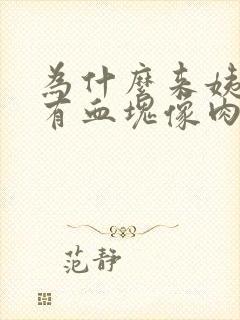 为什麼来姨
有血塊像肉
范静